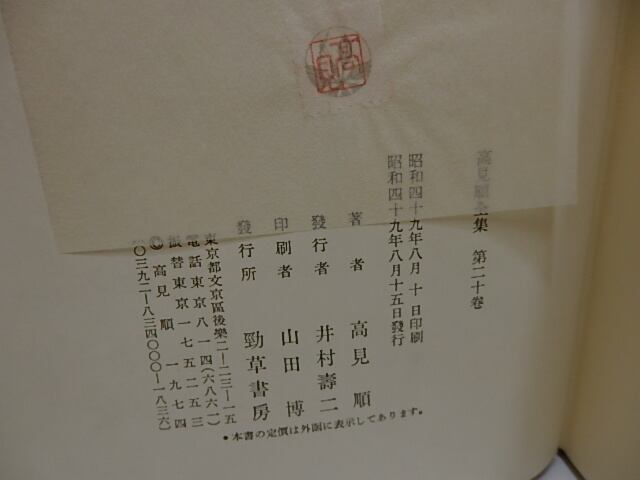 高見
高見順全集 第二十卷
昭和四十九年八月 十日印刷
昭和四十九年八月十五日發行
著者 高見順
發行者 井村壽二
印刷者 山田博
發行所 勁草書房
東京都文京區後樂二―二三―一五
電話東京八一四(六八六一)
振替東京一七五二五三
© 高見順 一九七四
〇三九二―八三四〇〇〇―一八三六)
●本書の定價は外函に表示してあります。